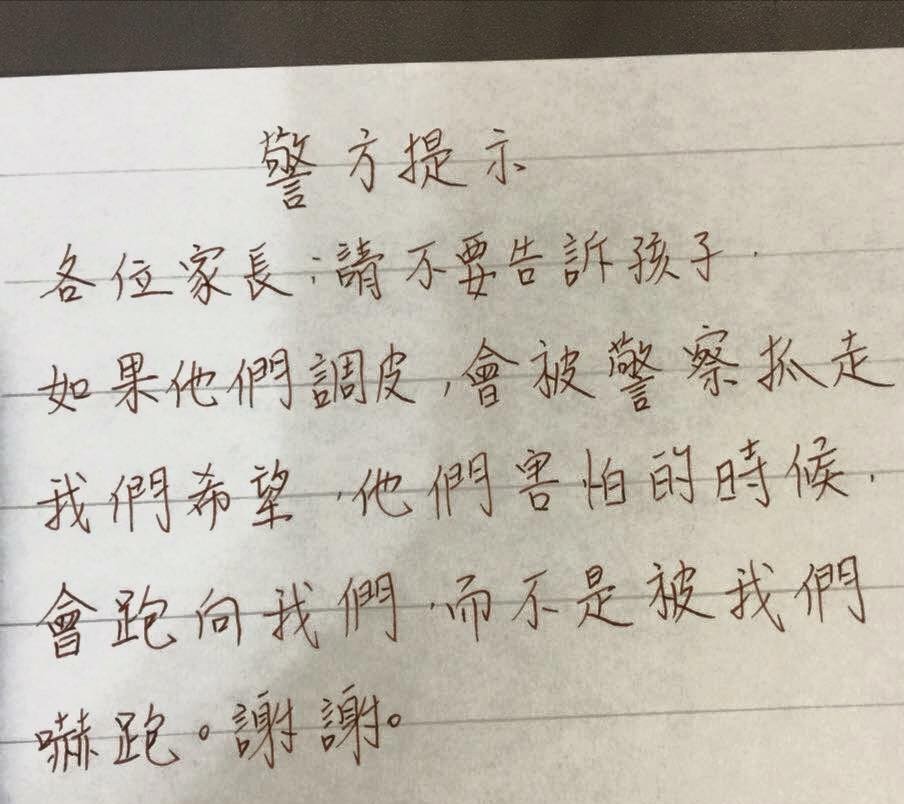 警方提示
各位家長:請不要告訴孩子.
如果他們調皮,會被警察抓走
我們希望,他們害怕的時候.
會跑向我們,而不是被我們
嚇跑。謝謝。